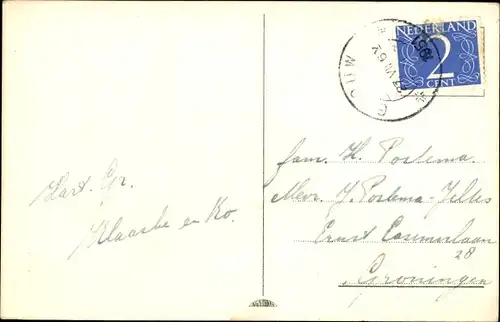 NEDERLAND
2
CENT
1951
Fam. H. Postema
Mevr. J. Postema-Jelles
Ernst Casimirlaan
28
Groningen
Hart. Gr.
Klaaske en Ko.